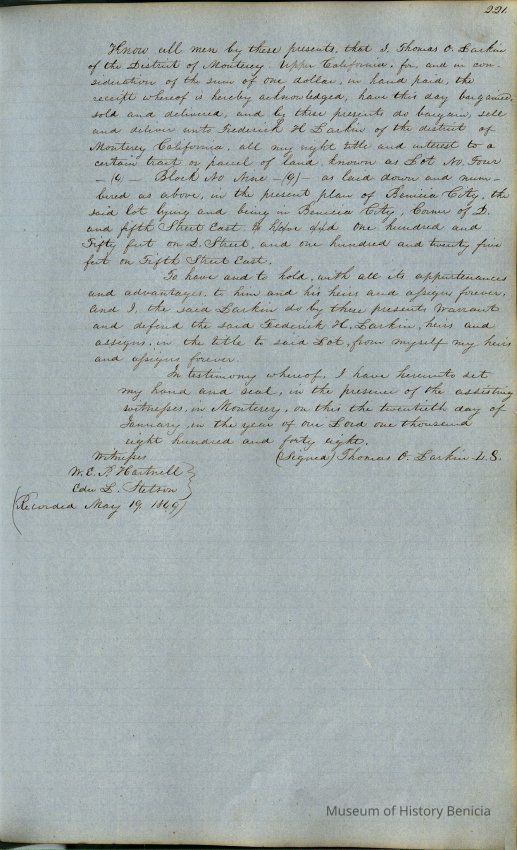 221.
Know all men by these presents, that I, Thomas O. Larkin
of the District of Monterey, Upper California, for, and in con-
sideration of the sum of one dollar, in hand paid, the
receipt whereof is hereby acknowledged, have this day bargained,
sold and delivered, and by these presents do bargain, sell
and deliver unto Frederick H. Larkin of the district of
Monterey California, all my right title and interest to a
certain tract or parcel of land, known as Lot No. Four
-(4)- Block No Nine -(9)- as laid down and num-
bered as above, in the present plan of Benicia City, the
said lot lying and being in Benicia City, Corner of D.
and fifth Street East, one hundred and
Fifty feet on D. Street, and one hundred and twenty five
feet on Fifth Street East.
To have and to hold, with all its appurtenances
and advantages, to him and his heirs and assigns forever,
and I, the said Larkin do by these presents Warrant
and defend the said Frederick H. Larkin, heirs and
assigns, in the title to said Lot, from myself my heirs
and assigns forever.
In testimony whereof, I have hereunto set
my hand and seal, in the presence of the assisting
witnesses, in Monterey, on this the twentieth day of
January, in the year of our Lord one thousand
eight hundred and forty eight.
Witnesses (Signed) Thomas O. Larkin L.S.
W. E. P. Hartnell
Edw L. Stetson
(Recorded May 19, 1849)
Museum of History Benicia